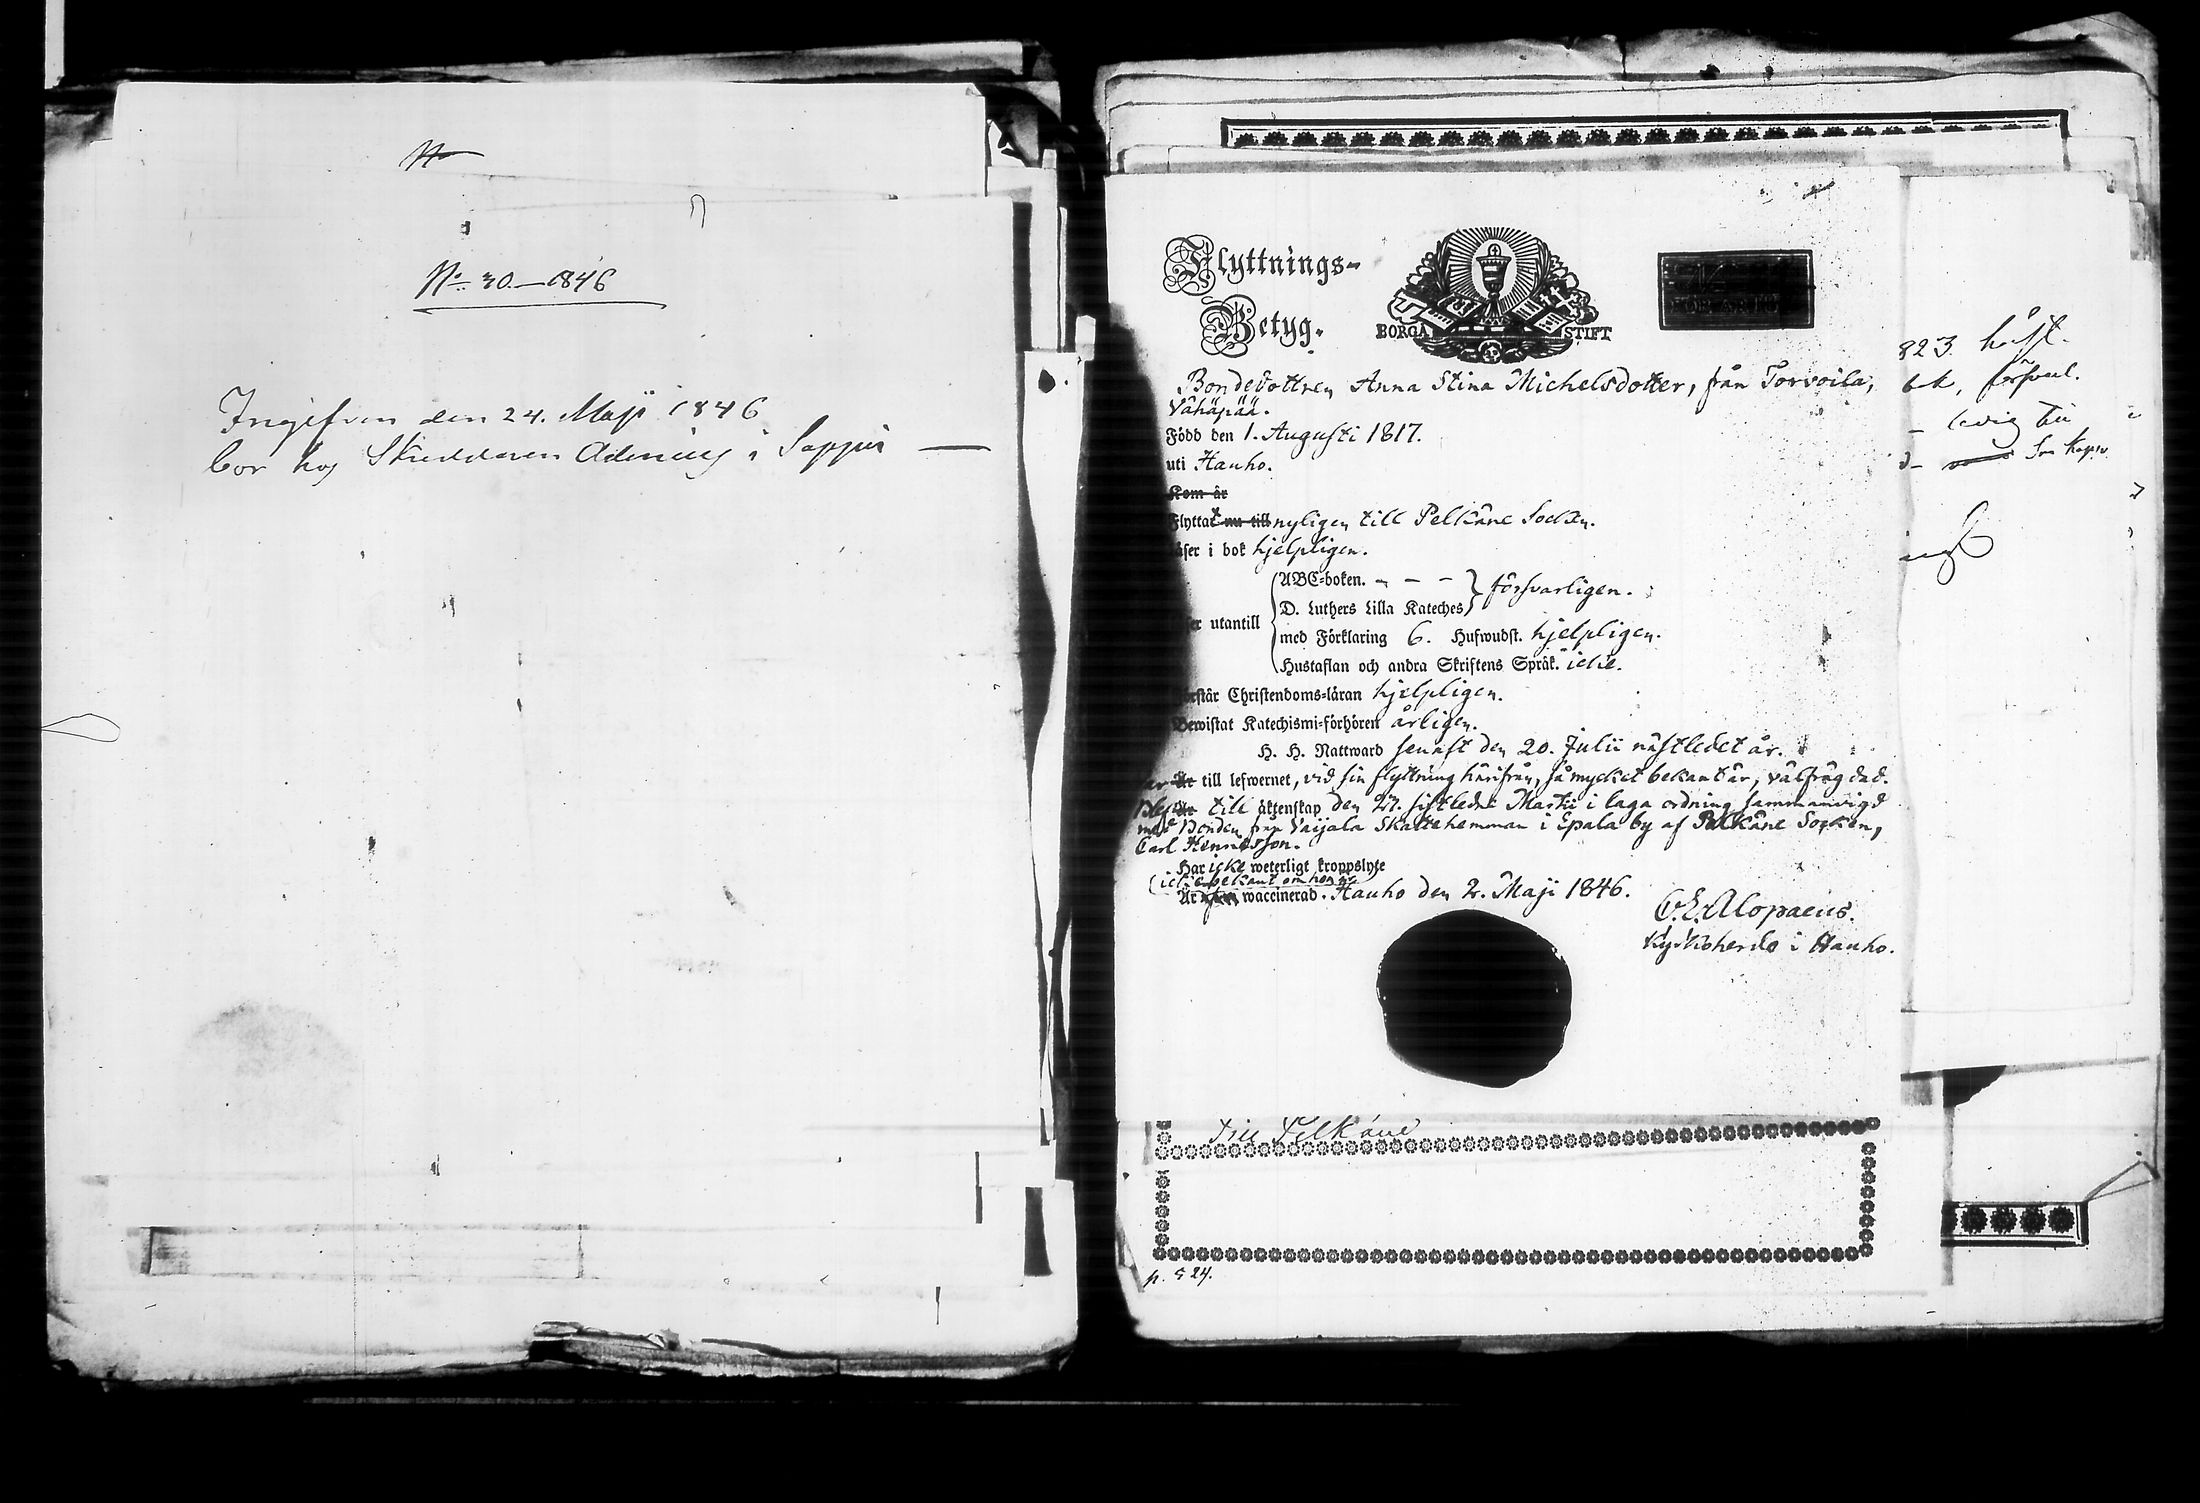 No
No 30.—1846
Ingifven den 24. Maji 1846
bor hos Skräddaren i Sappi —
Flyttnings-
Betyg.
BORGÅ STIFT
Bondedottren Anna Stina Michelsdotter, från Torvoila,
Vähäpää.
Född den 1. Augusti 1817.
uti Hauho.
Kom år
Flyttat nu till nyligen till Pelkäne Socken.
äser i bok hjelpligen.
ABC-boken. - - - försvarligen.
D. Luthers Lilla Kateches
er utantill
med Förklaring 6. Hufwudst. hjelpligen.
Hustaflan och andra Skriftens Språk. icke.
örstår Christendoms-läran hjelpligen.
Bewistat Katechismi-förhören årligen.
H. H. Nattward senast den 20. Julii nästledet år.
var Är till lefwernet, vid sin flyttning härifrån, så mycket bekant är, välfrägdad.
Blef Är till äktenskap den 27. sistledne Martii i laga ordning sammanvigd
med Bonden från Vaijala Skattehemman i Epala by af Pelkäne Socken,
Carl Henriksson.
Har icke weterligt kroppslyte
(icke bekant om hon är
Är waccinerad. Hauho den 2. Maji 1846.
C. E. Alopaeus.
Kyrkoherde i Hauho.
Till Pelkäne
p. 524.
823. höst.
bok, försvarl.
— ledig till